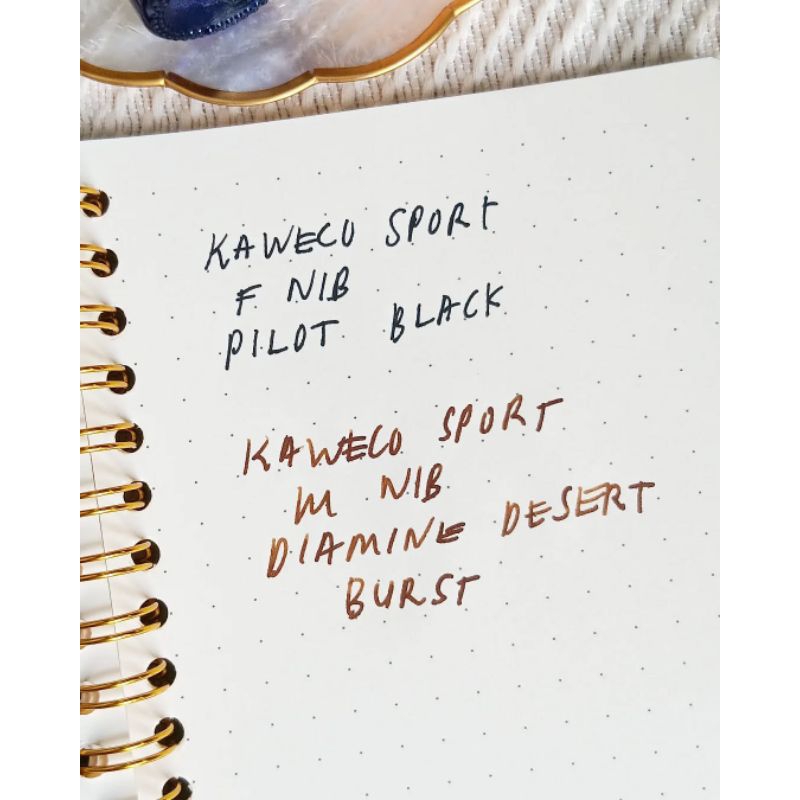 KAWECO SPORT
F NIB
PILOT BLACK
KAWECO SPORT
M NIB
DIAMINE DESERT
BURST